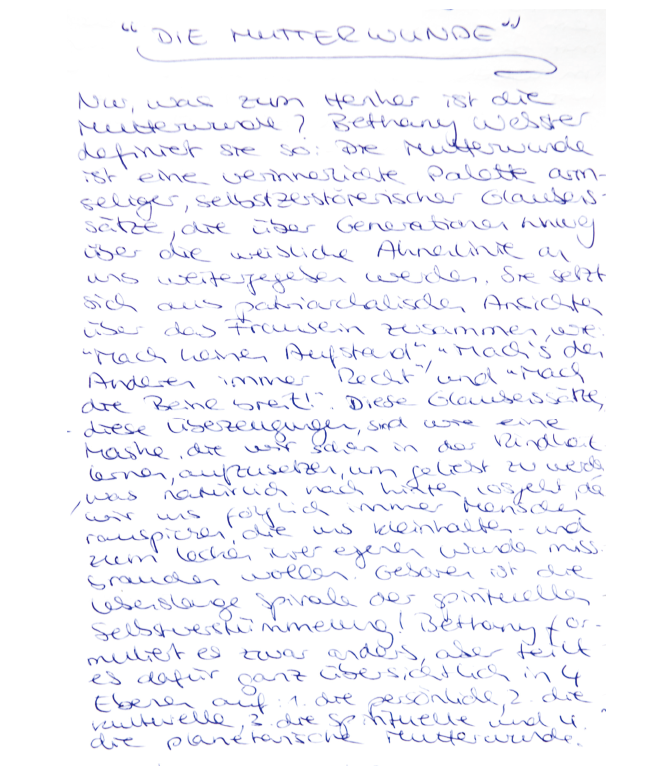 "DIE MUTTERWUNDE"
Nur, was zum Henker ist die
Mutterwunde? Bethany Webster
definiert sie so: Die Mutterwunde
ist eine verinnerlichte Palette arm-
seliger, selbstzerstörerischer Glaubens-
sätze, die über Generationen hinweg
über die weibliche Ahnenlinie an
uns weitergegeben werden. Sie setzt
sich aus patriarchalischen Ansichten
über das Frausein zusammen, wie:
"Mach keinen Aufstand" "Mach's den
Anderen immer Recht" und "Mach
die Beine breit!". Diese Glaubenssätze,
diese Überzeugungen, sind wie eine
Maske, die wir schon in der Kindheit
lernen, aufzusetzen, um geliebt zu werden
, was natürlich nach hinten losgeht, da
wir uns folglich immer Menschen
rauspicken, die uns kleinhalten und
zum Lecken ihrer eigenen Wunden miss-
brauchen wollen. Geboren ist die
lebenslange Spirale der spirituellen
Selbstverstümmelung! Bethany for-
muliert es zwar anders, aber teilt
es dafür ganz übersichtlich in 4
Ebenen auf: 1. die persönliche, 2. die
kulturelle, 3. die spirituelle und 4.
die planetarische Mutterwunde.